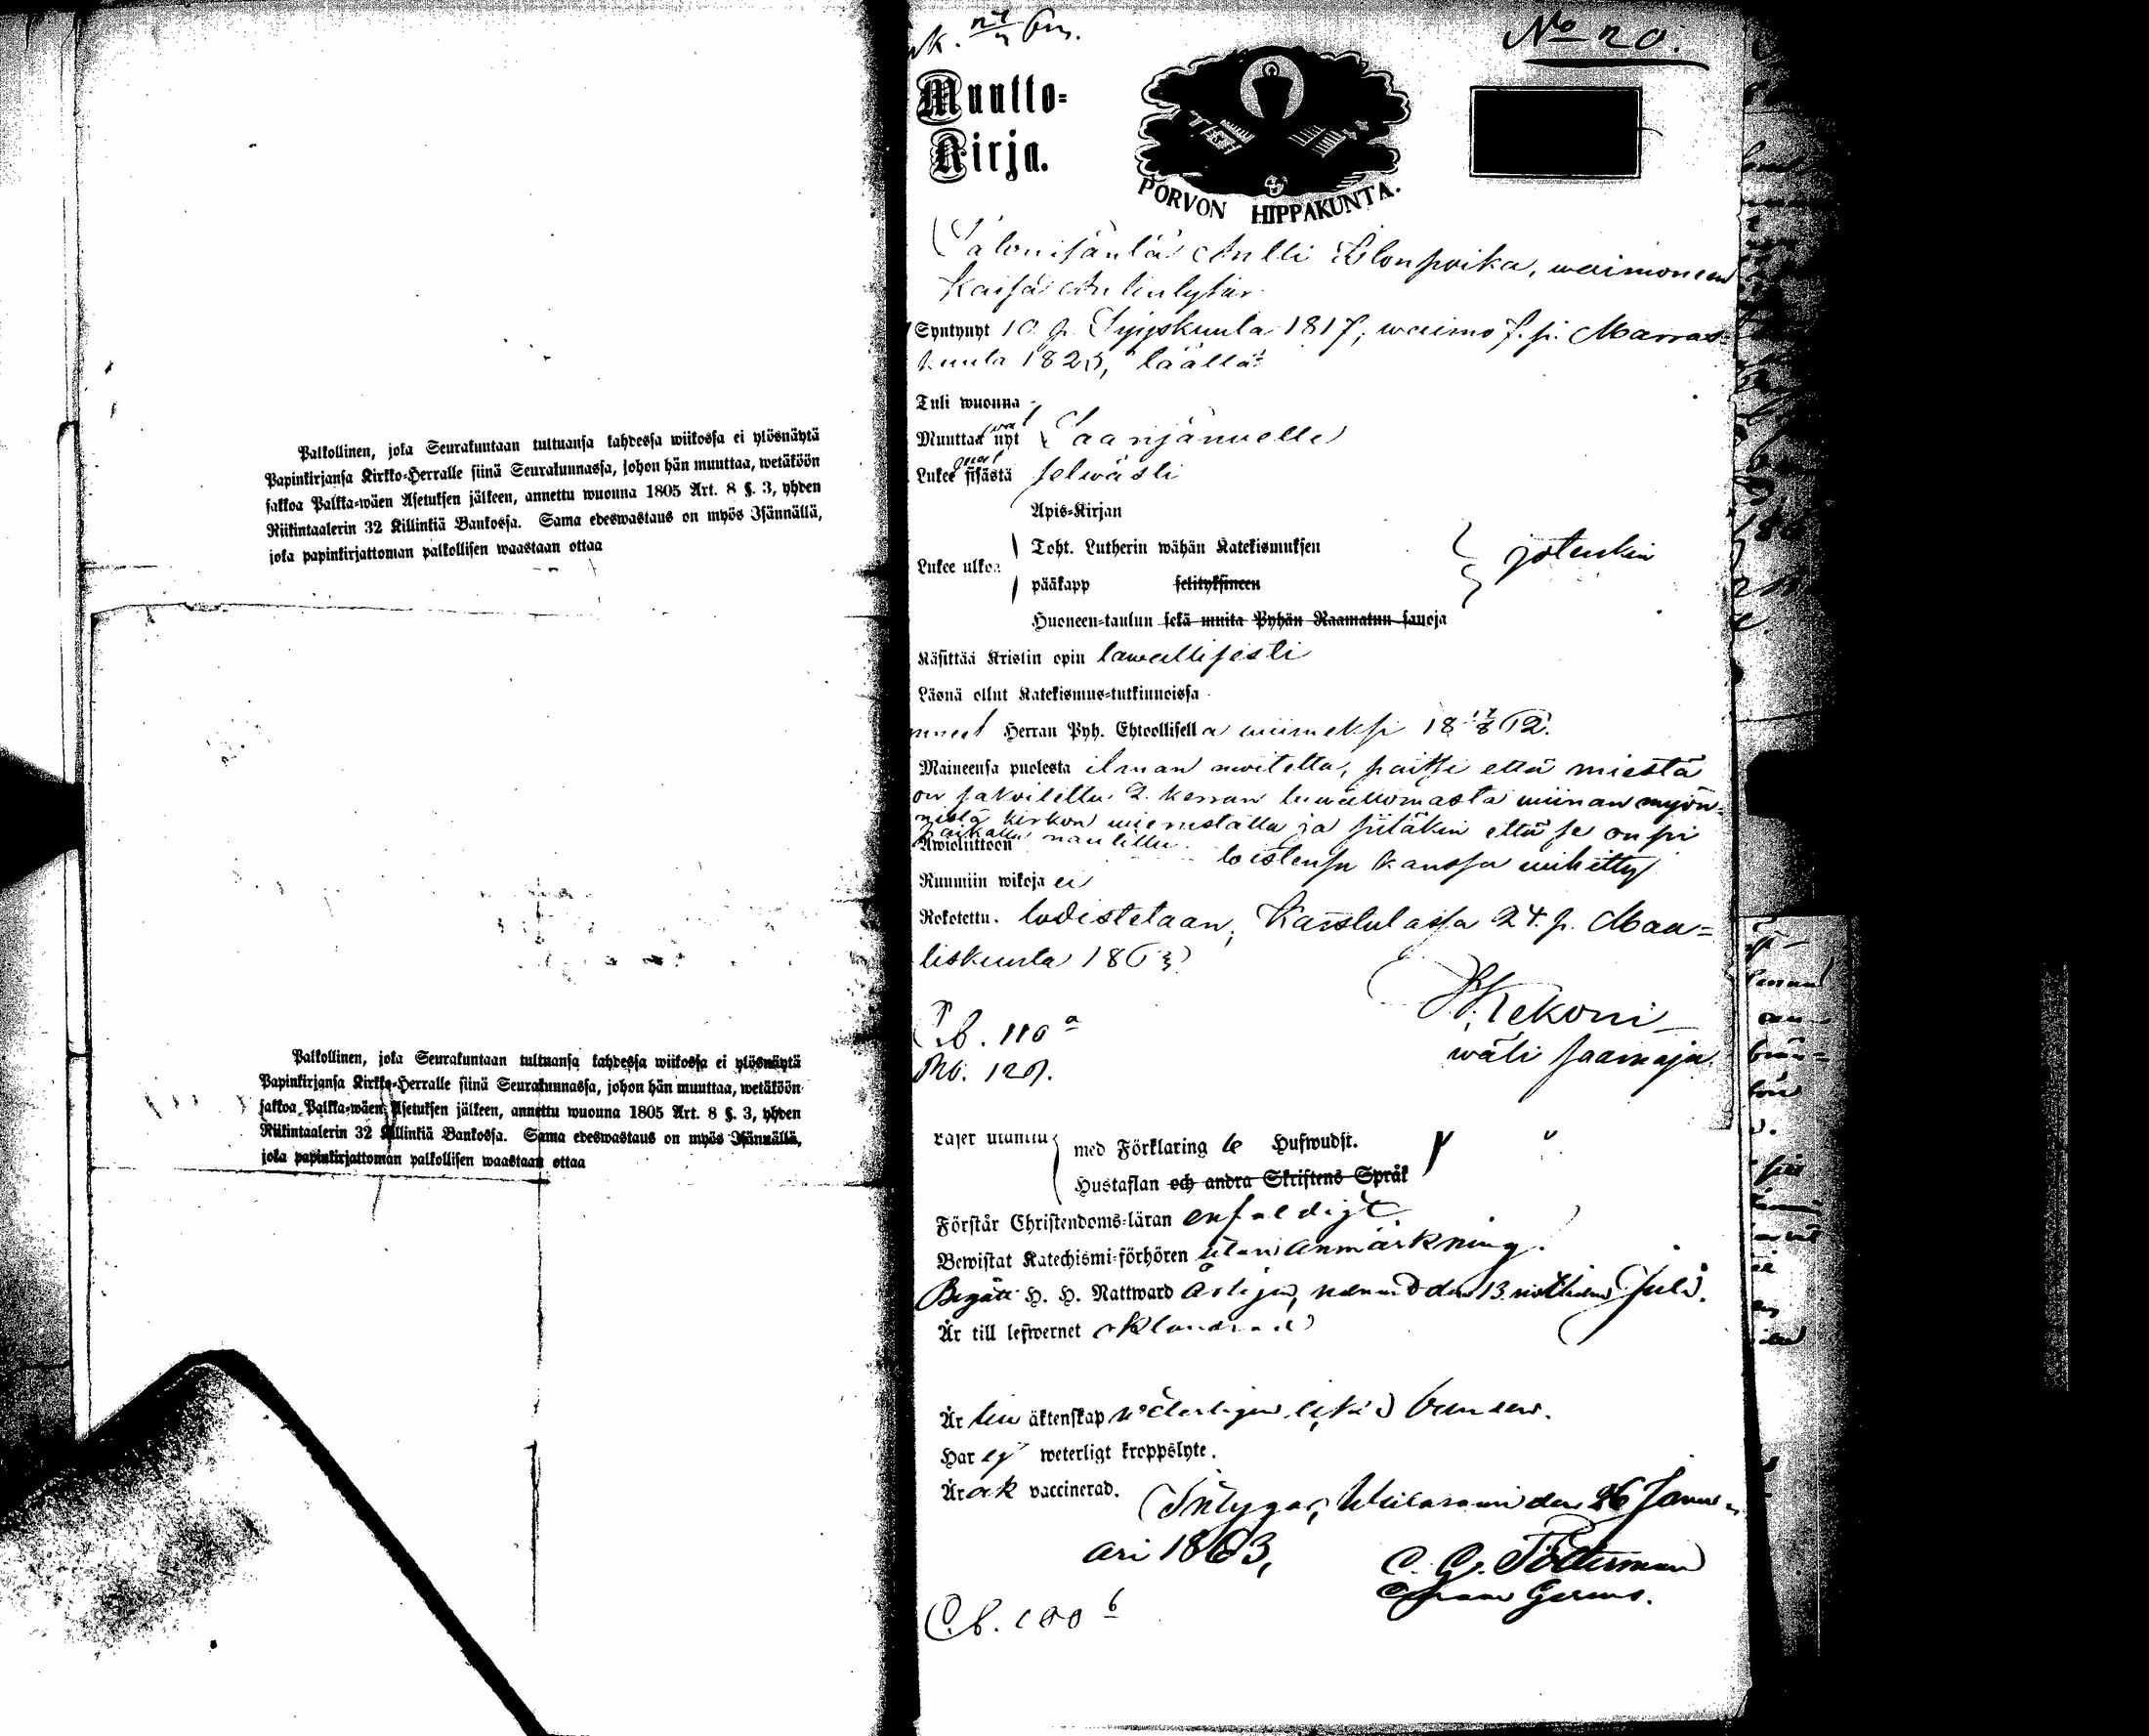 Palkollinen, joka Seurakuntaan tultuansa kahdessa wiikossa ei ylösnäytä
Papinkirjansa Kirkko-Herralle siinä Seurakunnassa, johon hän muuttaa, wetäköön
sakkoa Palkka-wäen Asetuksen jälkeen, annettu wuonna 1805 Art. 8 §. 3, yhden
Riikintaalerin 32 Killinkiä Bankossa. Sama edeswastaus on myös Isännällä,
joka papinkirjattoman palkollisen waastaan ottaa
Palkollinen, joka Seurakuntaan tultuansa kahdessa wiikossa ei ylösnäytä
Papinkirjansa Kirkko-Herralle siinä Seurakunnassa, johon hän muuttaa, wetäköön
sakkoa Palkka-wäen Asetuksen jälkeen, annettu wuonna 1805 Art. 8 §. 3, yhden
Riikintaalerin 32 Killinkiä Bankossa. Sama edeswastaus on myös Isännällä,
joka papinkirjattoman palkollisen waastaan ottaa
No 20.
Muutto-
Kirja.
PORVON HIPPAKUNTA.
Talonisäntä Antti Elonpoika, waimoneen
Kaisa Antintytär
Syntynyt 10 p. Syyskuuta 1817, waimo 7. p. Marras-
kuuta 1823, täällä
Tuli wuonna
Muuttaawat nyt Saarijärwelle
Lukewat sisästä selwästi
Apis-Kirjan
Lukee ulkoa
Toht. Lutherin wähän Katekismuksen
pääkapp selityksineen
jotenkin
Huoneen-taulun sekä muita Pyhän Raamatun sanoja
Käsittää Kristin opin lawallisesti
Läsnä ollut Katekismus-tutkinnoissa
Herran Pyh. Ehtoollisella wiimeksi 18 17/8 62.
Maineensa puolesta ilman moitetta, paitsi että miestä
on sakoitettu 2 kerran luwattomasta wiinan myön-
nistä kirkon wierustalla ja siitäkin että se on pi
paikalla nautittu.
Awioliittoon toistensa kanssa wihitty
Ruumiin wikoja ei
Rokotettu. todistetaan, Karstulassa 24. p. Maa-
liskuuta 1863
Kekoni
C.b. 110 a
wäli saarnaja.
No. 129.
med Förklaring Hufwudst.
Hustaflan och andra Skriftens Språk
Förstår Christendoms-läran enfaldigt
Bewistat Katechismi-förhören utan anmärkning.
Begått H. H. Nattward årligen, den 13 Juli.
Är till lefwernet oklandrad
Är till äktenskap weterligen icke bunden.
Har ej weterligt kroppslyte.
Är ok vaccinerad.
Intygar, Wiitasaari den 26 Janu-
ari 1863,
C. G. Töterman
C.b. 100 b